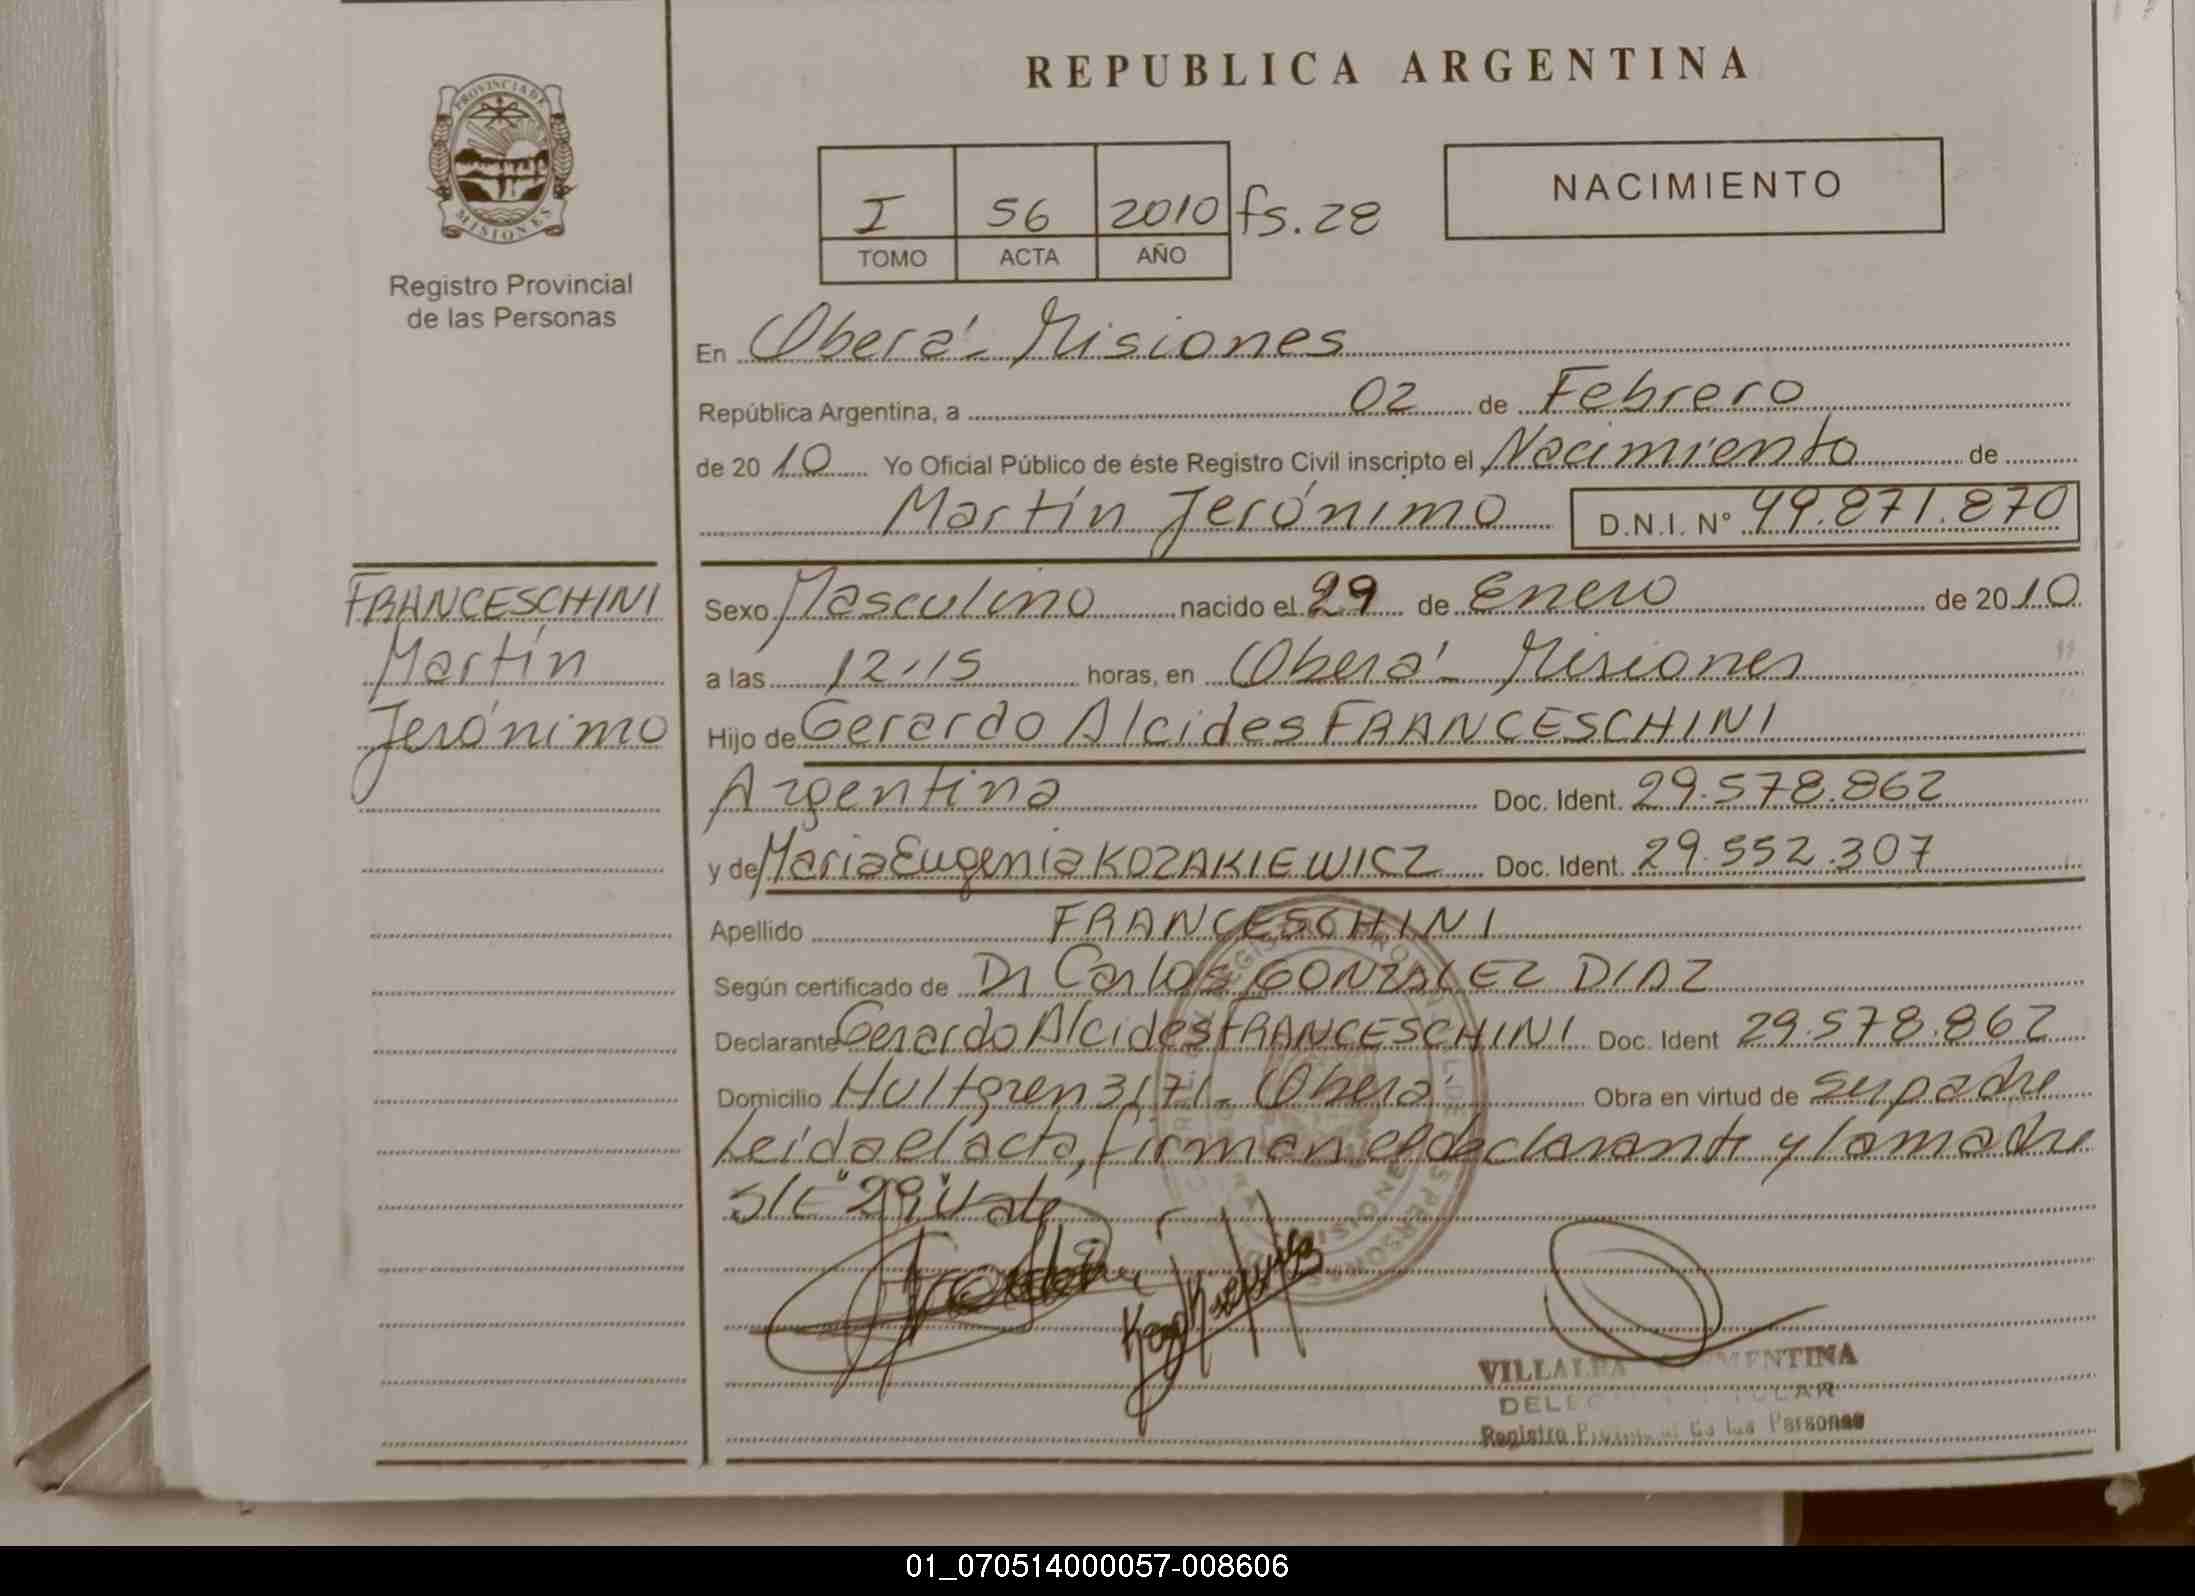 PROVINCIA DE
MISIONES
Registro Provincial
de las Personas
REPUBLICA ARGENTINA
NACIMIENTO
I 56 2010 fs. 28
TOMO ACTA AÑO
En Oberá - Misiones
República Argentina, a 02 de Febrero
de 20 10 Yo Oficial Público de éste Registro Civil inscripto el Nacimiento de
Martín Jerónimo D.N.I. N° 49.871.870
FRANCESCHINI
Martín
Jerónimo
Sexo Masculino nacido el 29 de Enero de 20 10
a las 12.15 horas, en Oberá - Misiones
Hijo de Gerardo Alcides FRANCESCHINI
Argentina Doc. Ident. 29.578.862
y de Maria Eugenia KOZAKIEWICZ Doc. Ident. 29.552.307
Apellido FRANCESCHINI
Según certificado de Dr Carlos GONZALEZ DIAZ
Declarante Gerardo Alcides FRANCESCHINI Doc. Ident 29.578.862
Domicilio Hultgren 3171 - Oberá Obra en virtud de su padre
Leída el acta, firman el declarante y la madre
S/E "29" Vale
VILLALBA
Registro Provincial de las Personas
01_070514000057-008606